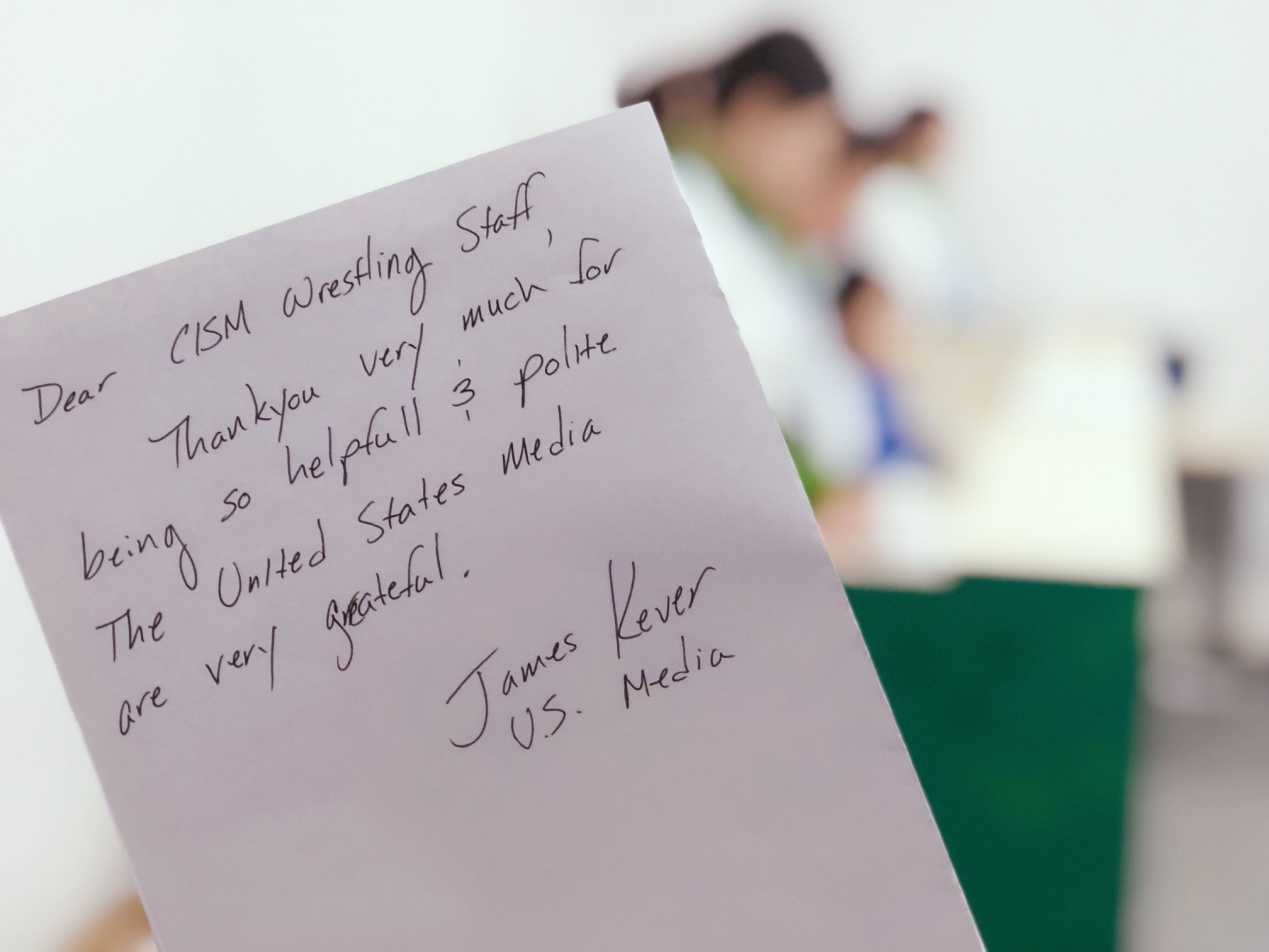 Dear CISM Wrestling Staff,
Thankyou very much for
being so helpfull & polite
The United States Media
are very greateful.
James Kever
U.S. Media